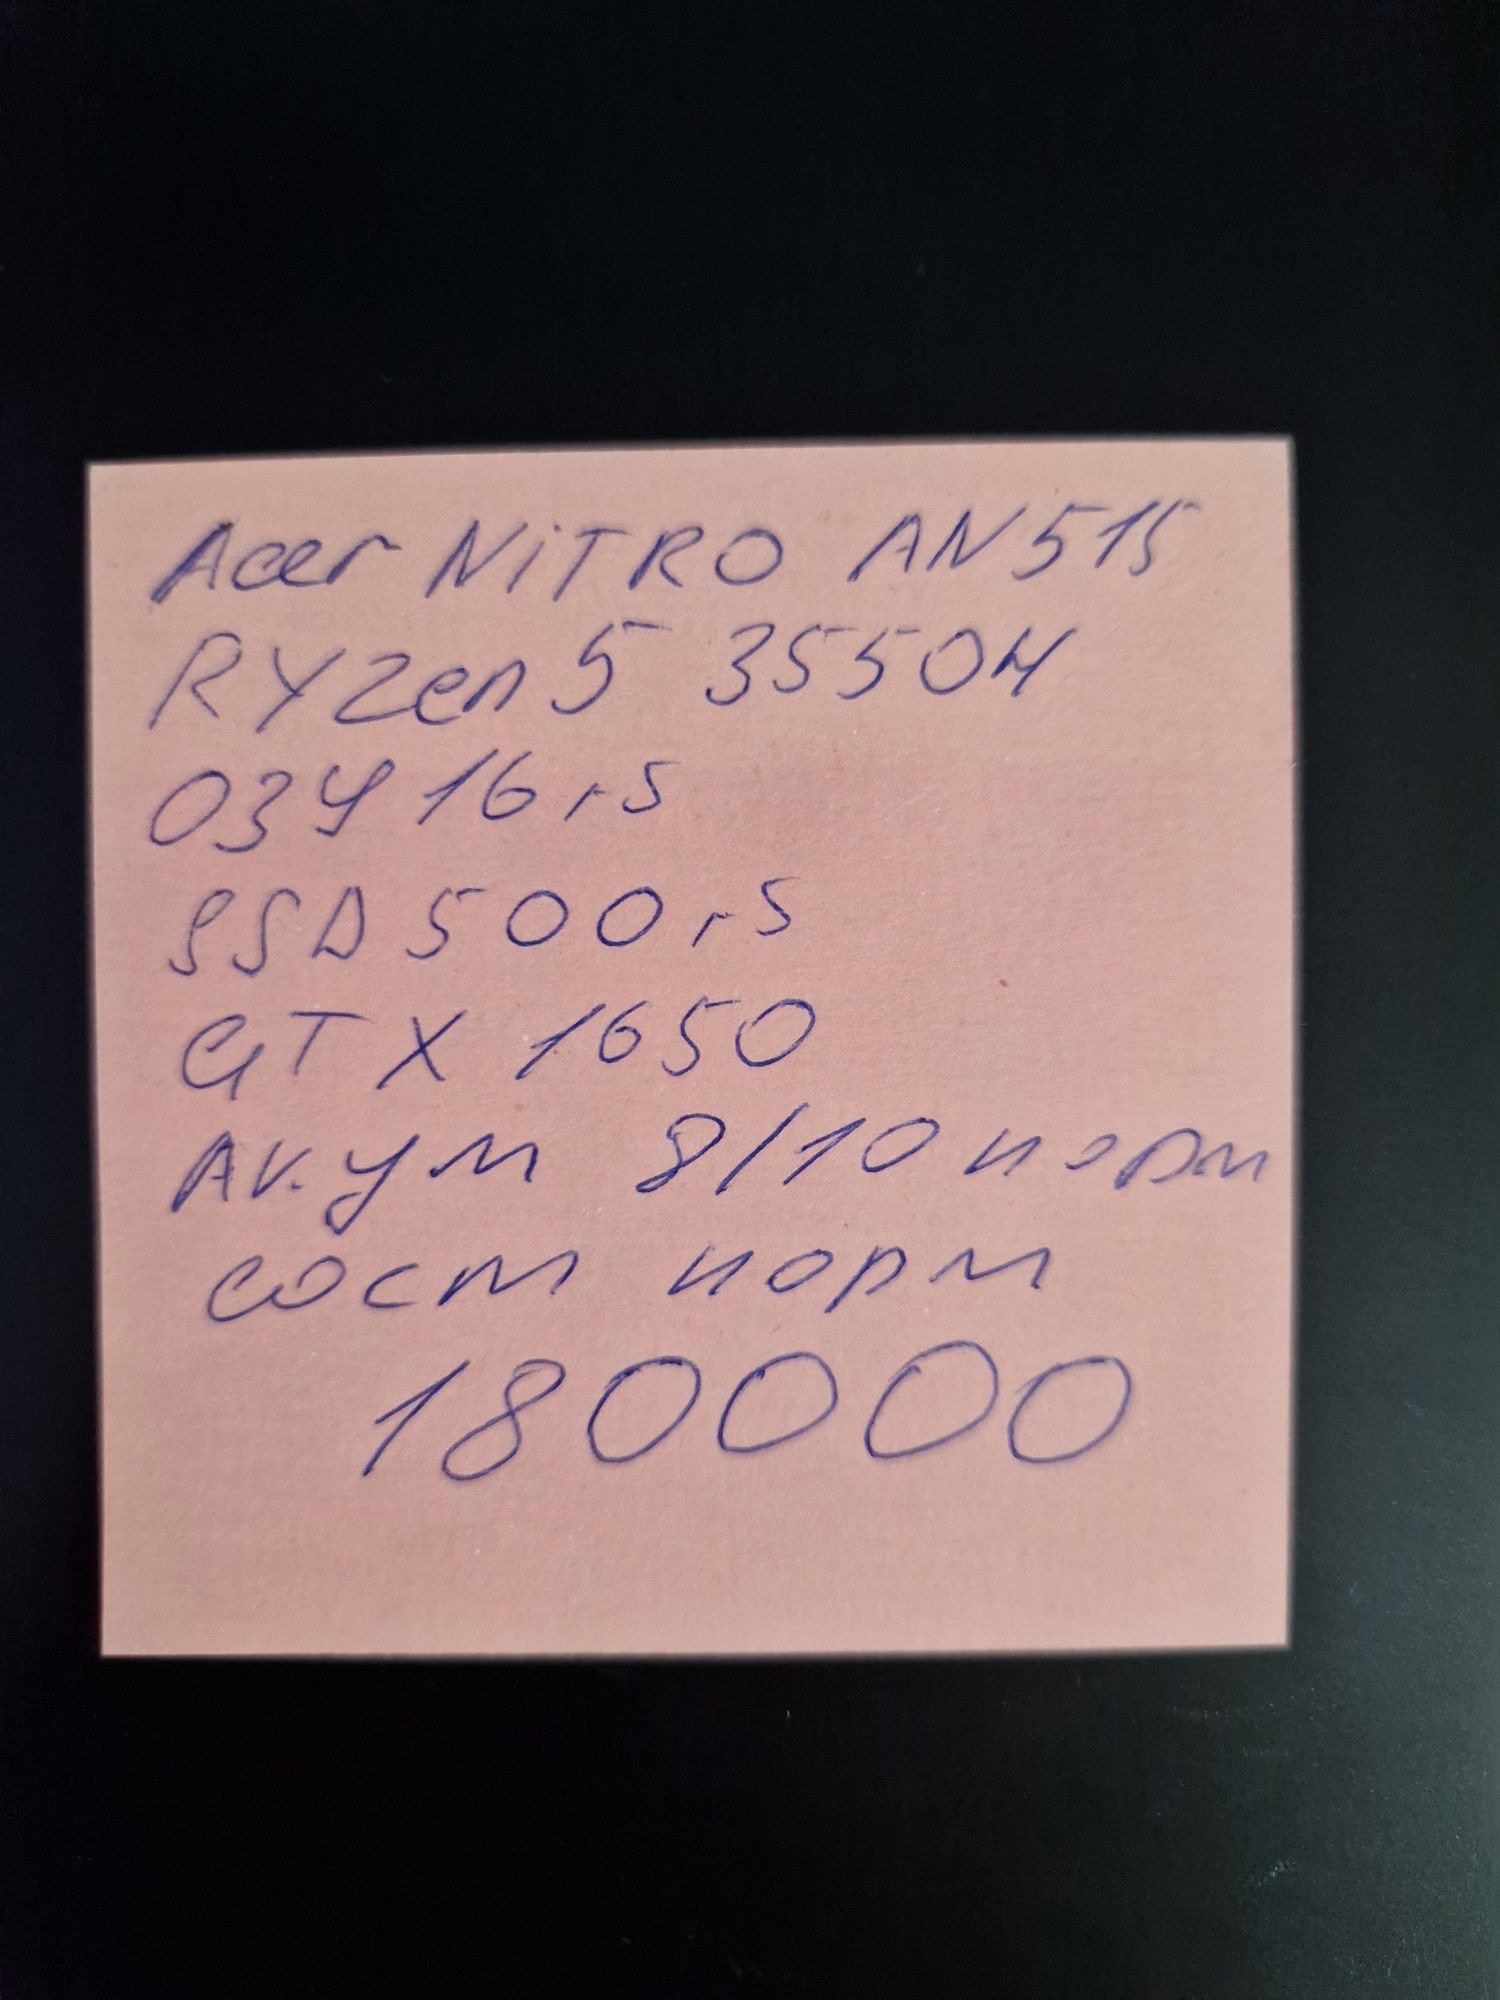 Acer NiTRO AN515
RYZen 5 3550H
ОЗУ 16 гб
SSD 500 гб
GTX 1650
Акум 8/10 норм
сост норм
180000